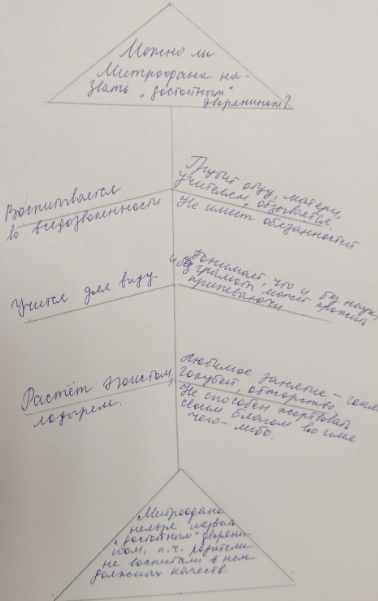 Можно ли
Митрофана на-
звать „достойным"
дворянином?
Воспитывается
во вседозволенности
Грубит отцу, матери,
учителям, обзывается.
Не имеет обязанностей
Учится для виду.
Понимает, что и без наук,
и грамоты может прожить
припеваючи
Растёт эгоистом,
лодырем.
Любимое занятие –
голубей, обжорство.
Не способен жертвовать
своим благом во имя
чего-либо.
Митрофана
нельзя назвать
„достойным" дворяни-
ном, т.ч. родители
не воспитали в нем
должных качеств.